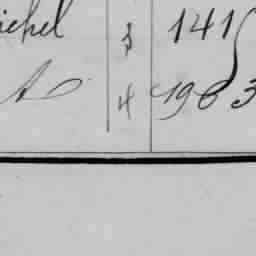 ichel 3 1415
A 4 1983